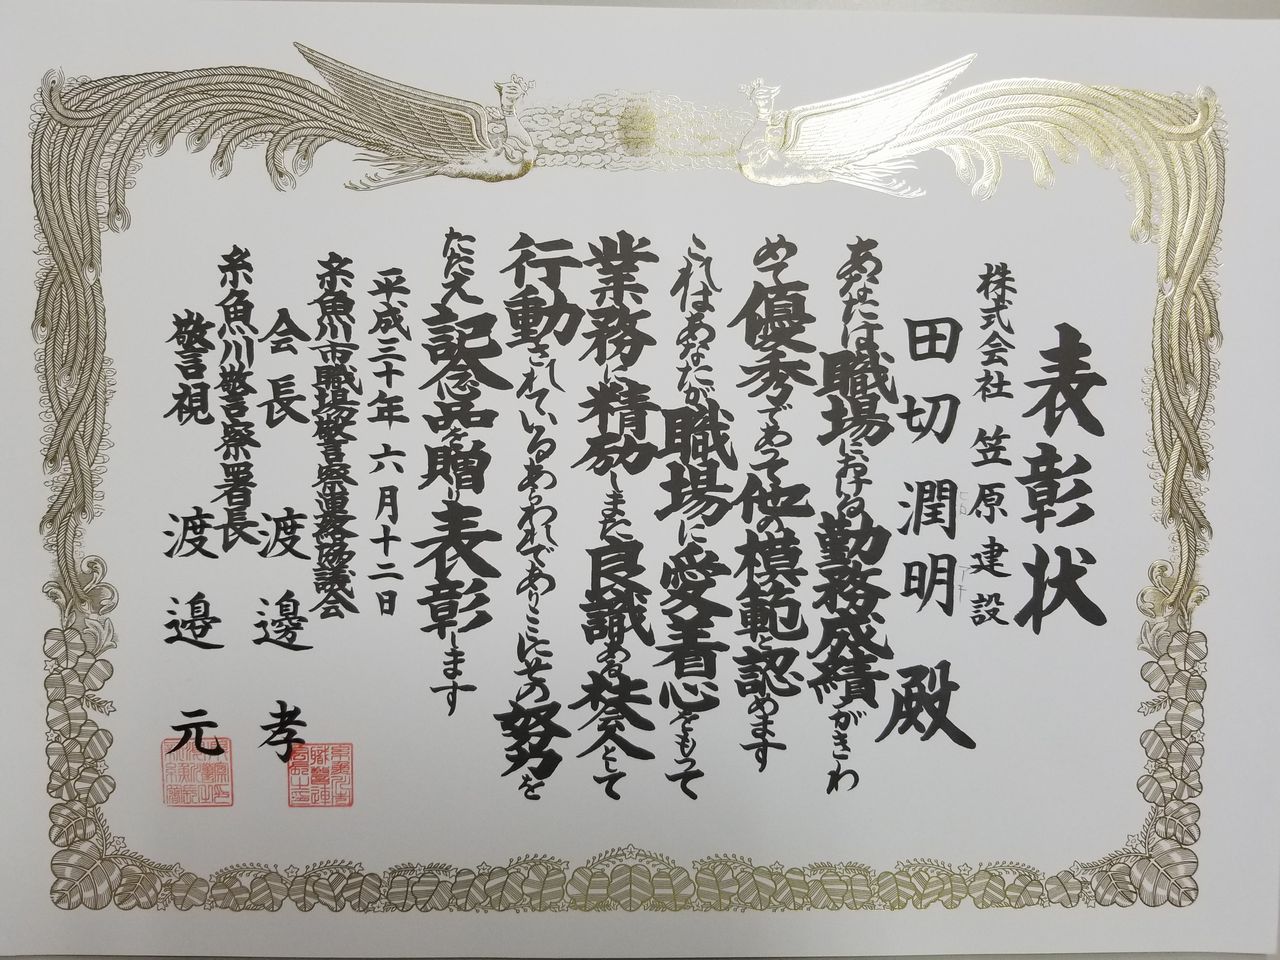 表彰状
株式会社 笠原建設
田切潤明 殿
あなたは職場における勤務成績がきわ
めて優秀であって他の模範と認めます
これはあなたが職場に愛着心をもって
業務に精励しまた良識ある社会人として
行動されているあらわれでありここにその努力を
たたえ記念品を贈り表彰します
平成三十年六月十二日
糸魚川市職場警察連絡協議会
会長 渡邉 孝
糸魚川警察署長
警視 渡邉 元